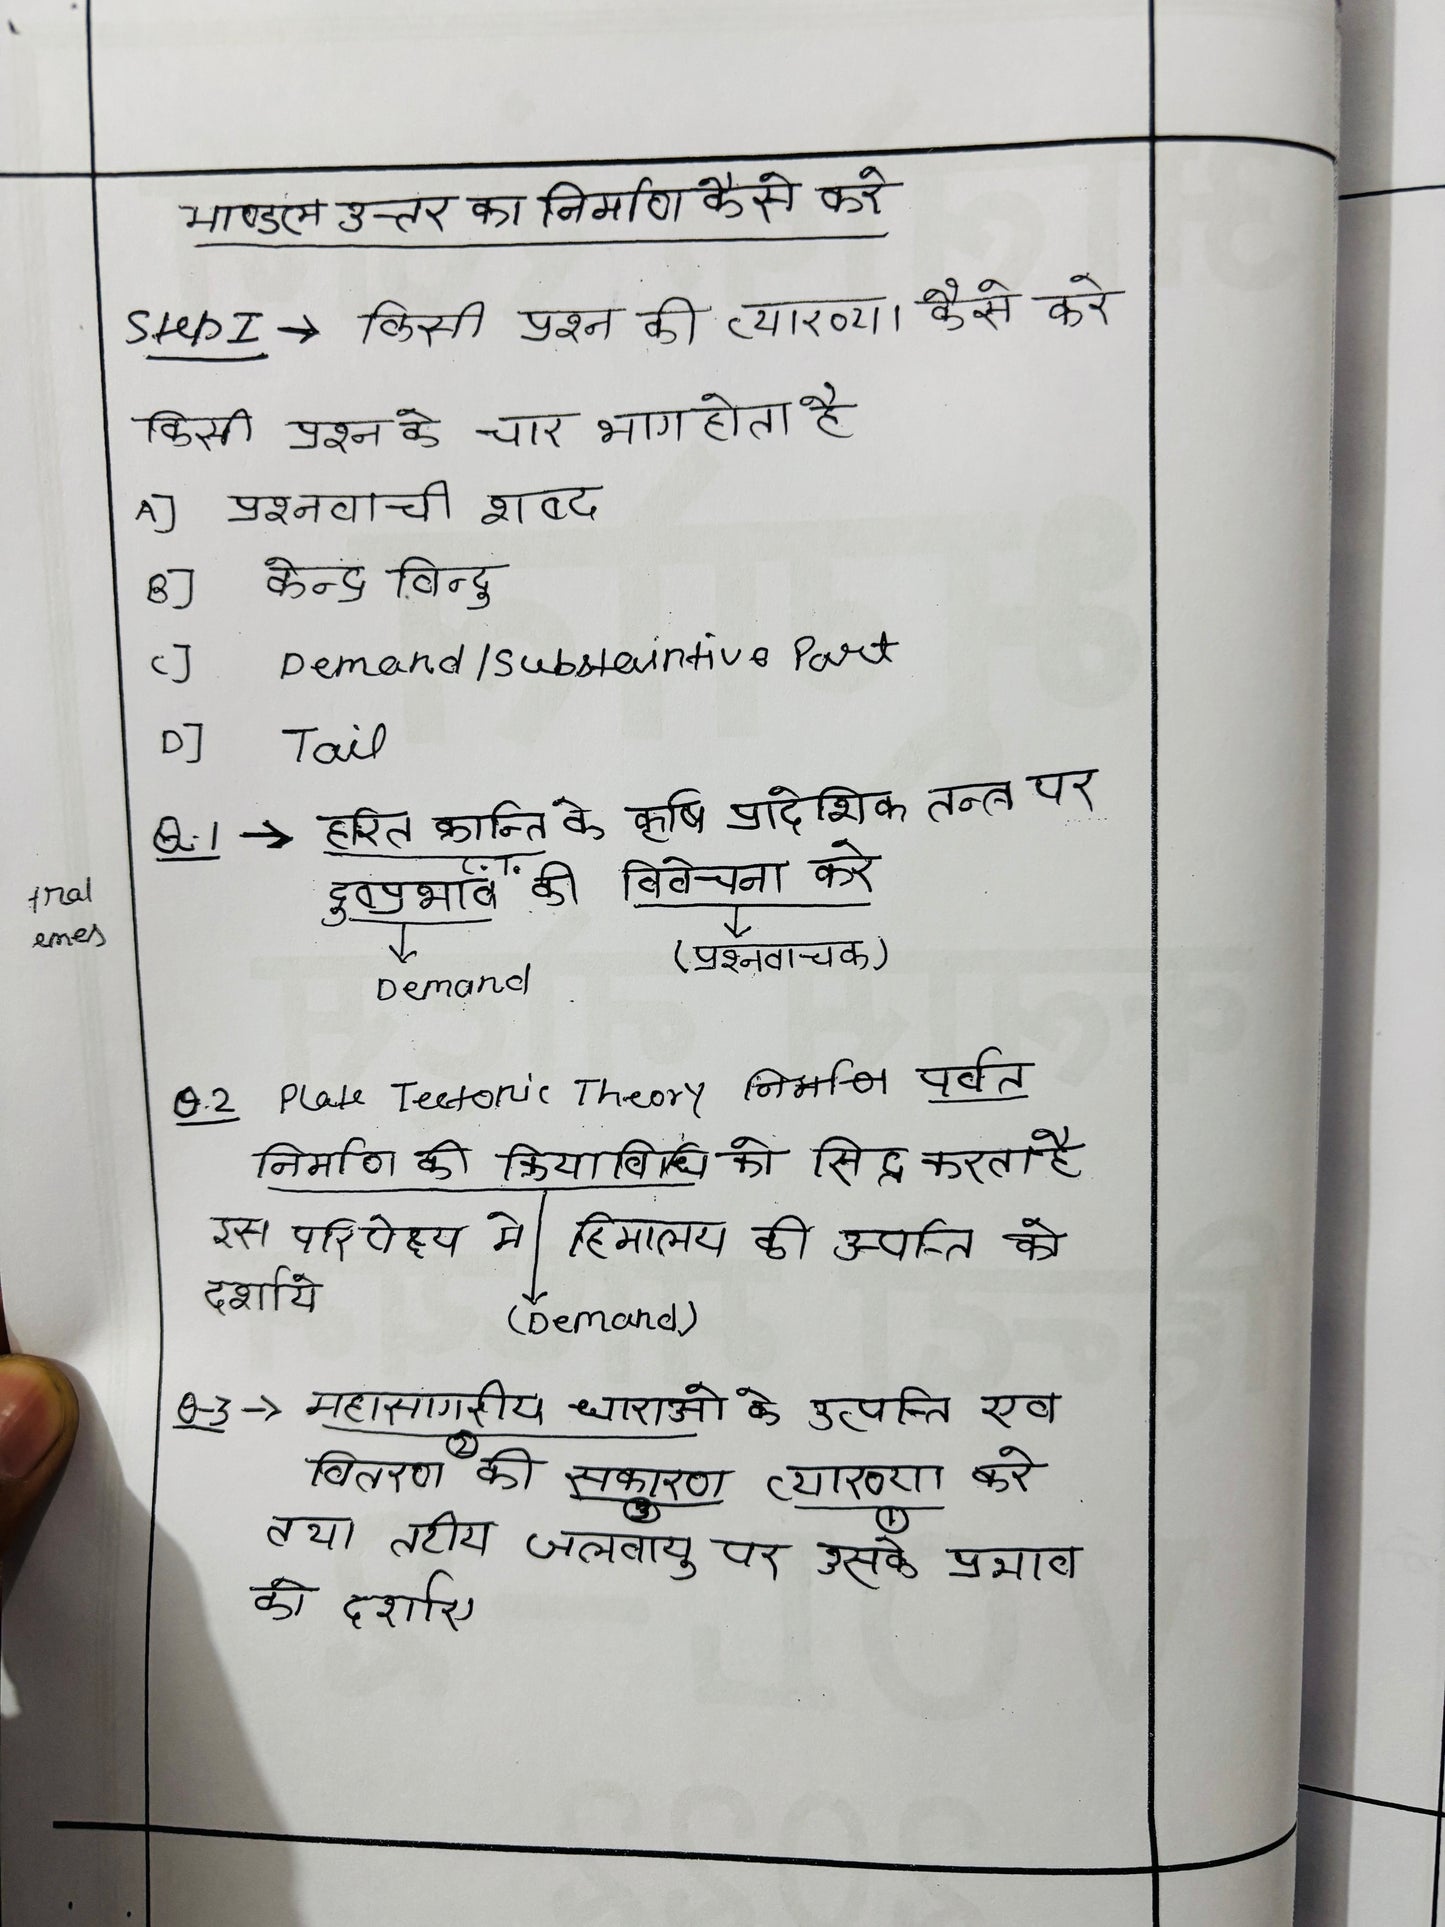 माण्डल उत्तर का निर्माण कैसे करे
Step I → किसी प्रश्न की व्याख्या कैसे करे
किसी प्रश्न के चार भाग होता है
A] प्रश्नवाची शब्द
B] केन्द्र विन्दु
C] Demand/Substaintive Part
D] Tail
Q.1 → हरित क्रान्ति के कृषि प्रादेशिक तन्त्र पर
C.T.
दुष्प्रभाव की विवेचना करे
↓ ↓
Demand (प्रश्नवाचक)
Q.2 Plate Tectonic Theory निर्माण पर्वत
निर्माण की क्रियाविधि को सिद्ध करता है
इस परिपेक्ष्य मे हिमालय की उत्पत्ति को
दर्शाये
(Demand)
Q-3 → महासागरीय धाराओ के उत्पत्ति एव
②
वितरण की सकारण व्याख्या करे
③ ①
तथा तटीय जलवायु पर उसके प्रभाव
को दर्शाए
tral
emes